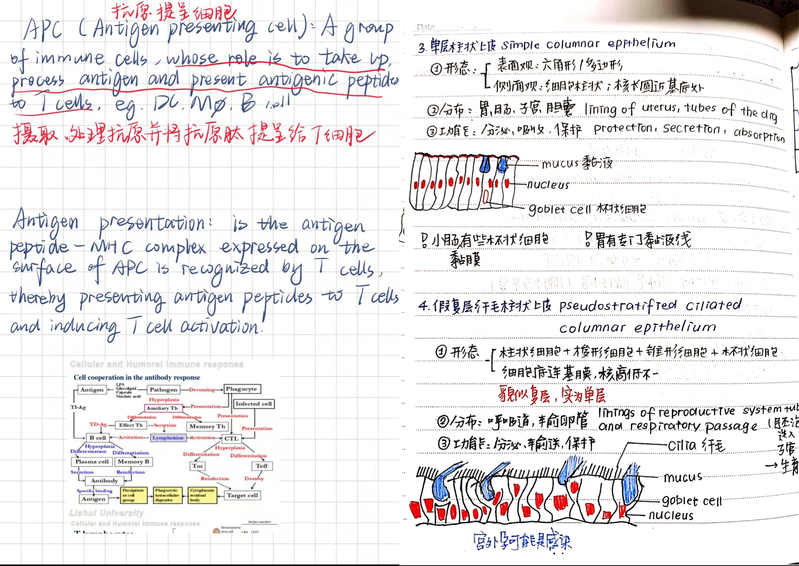 抗原提呈细胞
APC (Antigen presenting cell): A group
of immune cells, whose role is to take up,
process antigen and present antigenic peptides
to T cells. eg. DC, MØ, B cell
摄取、处理抗原并将抗原肽提呈给T细胞
Antigen presentation: is the antigen
peptide-MHC complex expressed on the
surface of APC is recognized by T cells,
thereby presenting antigen peptides to T cells
and inducing T cell activation.
Cellular and Humoral Immune response
Cell cooperation in the antibody response
Antigen
LPS
Glycolipid
Capsule
Nucleic acid
Pathogen
Devouring
Phagocyte
TI-Ag
Hyperplasia
Auxiliary Th
Presentation
Infected cell
Differentiation
Differentiation
Presentation
Presentation
TD-Ag
Effect Th
Secretion
Memory Th
B cell
Activation
Lymphokine
Activation
CTL
Hyperplasia
Differentiation
Differentiation
Hyperplasia
Differentiation
Plasma cell
Memory B
Tm
Teff
Secretion
Reinfection
Reinfection
Destroy
Antibody
Specific binding
Antigen
Precipitate
or cell
group
Phagocyte
intracellular
digestion
Cytoplasmic
residual
body
Target cell
Lishui University
Cellular and Humoral Immune response
T lymphocytes
Date
3. 单层柱状上皮 simple columnar epithelium
①形态: 表面观: 六角形/多边形
侧面观: 细胞柱状; 核长圆近基底处
②分布: 胃、肠、子宫、胆囊 lining of uterus, tubes of the dig
③功能: 分泌、吸收、保护 protection, secretion, absorption
mucus 黏液
nucleus
goblet cell 杯状细胞
小肠有些杯状细胞
胃有专门黏液线
黏膜
4. 假复层纤毛柱状上皮 pseudostratified ciliated
columnar epithelium
①形态 柱状细胞+梭形细胞+锥形细胞+杯状细胞
细胞底连基膜, 核高低不一
貌似复层, 实为单层
②分布: 呼吸道, 输卵管 linings of reproductive system tub
and respiratory passage
③功能: 分泌, 输送, 保护
进入
子宫
cilia 纤毛
mucus
goblet cell
nucleus
宫外孕可能是感染